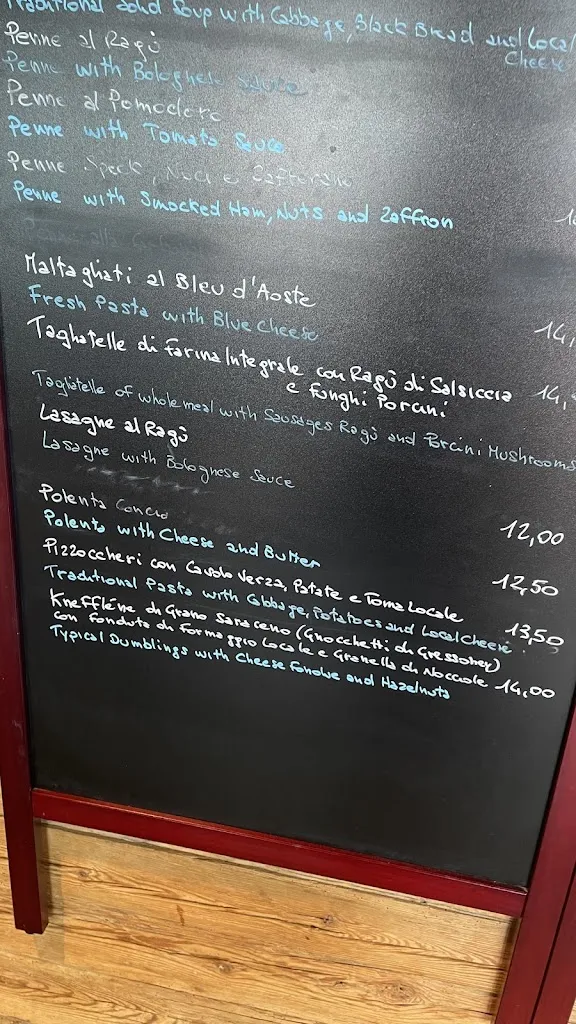 Traditional Solid Soup with Cabbage, Black Bread and Local
Cheese
Penne al Ragù
Penne with Bolognese Sauce
Penne al Pomodoro
Penne with Tomato Sauce
Penne Speck, Noci e Zafferano
Penne with Smocked Ham, Nuts and Zaffron
Maltagliati al Bleu d'Aoste
14,
Fresh Pasta with Blue Cheese
Tagliatelle di farina Integrale con Ragù di Salsiccia
e funghi Porcini
14,
Tagliatelle of wholemeal with Sausages Ragù and Porcini Mushrooms
Lasagne al Ragù
Lasagne with Bolognese Sauce
12,00
Polenta Concia
Polenta with Cheese and Butter
12,50
Pizzoccheri con Cavolo Verza, Patate e Toma Locale
13,50
Traditional Pasta with Cabbage, Potatoes and Local Cheese
Kneffléne di Grano Saraceno (Gnocchetti di Gressoney)
con fonduta di formaggio Locale e Granella di Nocciole 14,00
Typical Dumblings with Cheese Fondue and Hazelnuts